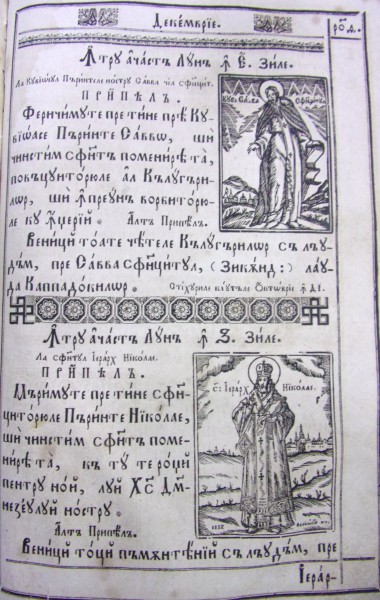 Декемврїе.
Ꙟтру ачаст Лун ꙟ Є҃. Ꙁиле.
Ла Кувїосул Пъринтеле ностру Савва чел сфинцит.
ПРИПѢЛЪ.
Феричимуте пре тине прѣ Ку-
вїѡасе Пъринте Савво, ши
чинстим сфѫнт поменирѣ та,
повъцуиторюле ал Кълугъри-
лѡр, ши ꙟпреун ворбиторю-
ле ку ꙟџерїй. Алт Припѣл.
Вениций тоате четеле Кълугърилѡр съ лъу-
дъм, пре Савва сфинцитул, (Ꙁикѫнд:) лау-
да Каппадокилѡр.
Стїхуриле каутъле Октомврїе ꙟ
КУВ: САВВА СФИНЦИТ
Ꙟтру ачаст Лун ꙟ Ѕ҃. Ꙁиле.
Ла сфѫнтул Їерарх Нїколае.
ПРИПѢЛЪ.
Мъримуте пре тине сфин-
циторюле Пъринте Нїколае,
ши чинстим сфѫнт поме-
нирѣ та, къ ту те роџй
пентру ной, луй Хс҃ Дꙋм-
незеулуй ностру.
Алт Припѣл.
Вениций тоци пъмѫнтѣний съ лъудъм, пре
с: Їерарх Нїколае.
Їерар-